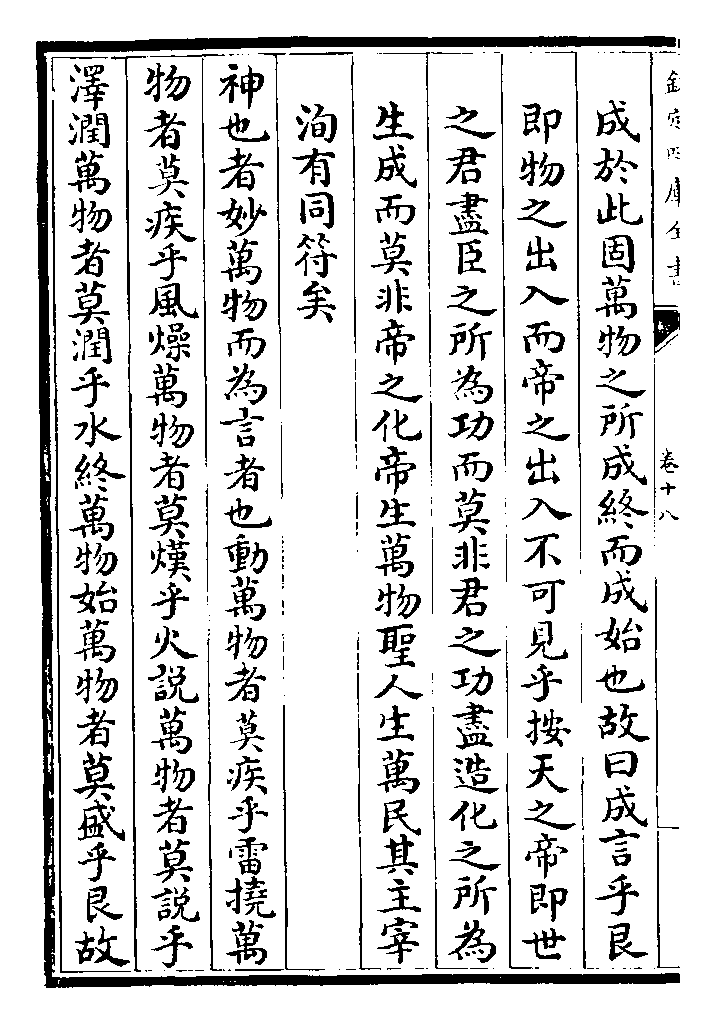 欽定四庫全書
卷十八
成於此固萬物之所成終而成始也故曰成言乎艮
即物之出入而帝之出入不可見乎按天之帝即世
之君盡臣之所為功而莫非君之功盡造化之所為
生成而莫非帝之化帝生萬物聖人生萬民其主宰
洵有同符矣
神也者妙萬物而為言者也動萬物者莫疾乎雷撓萬
物者莫疾乎風燥萬物者莫熯乎火說萬物者莫說乎
澤潤萬物者莫潤乎水終萬物始萬物者莫盛乎艮故